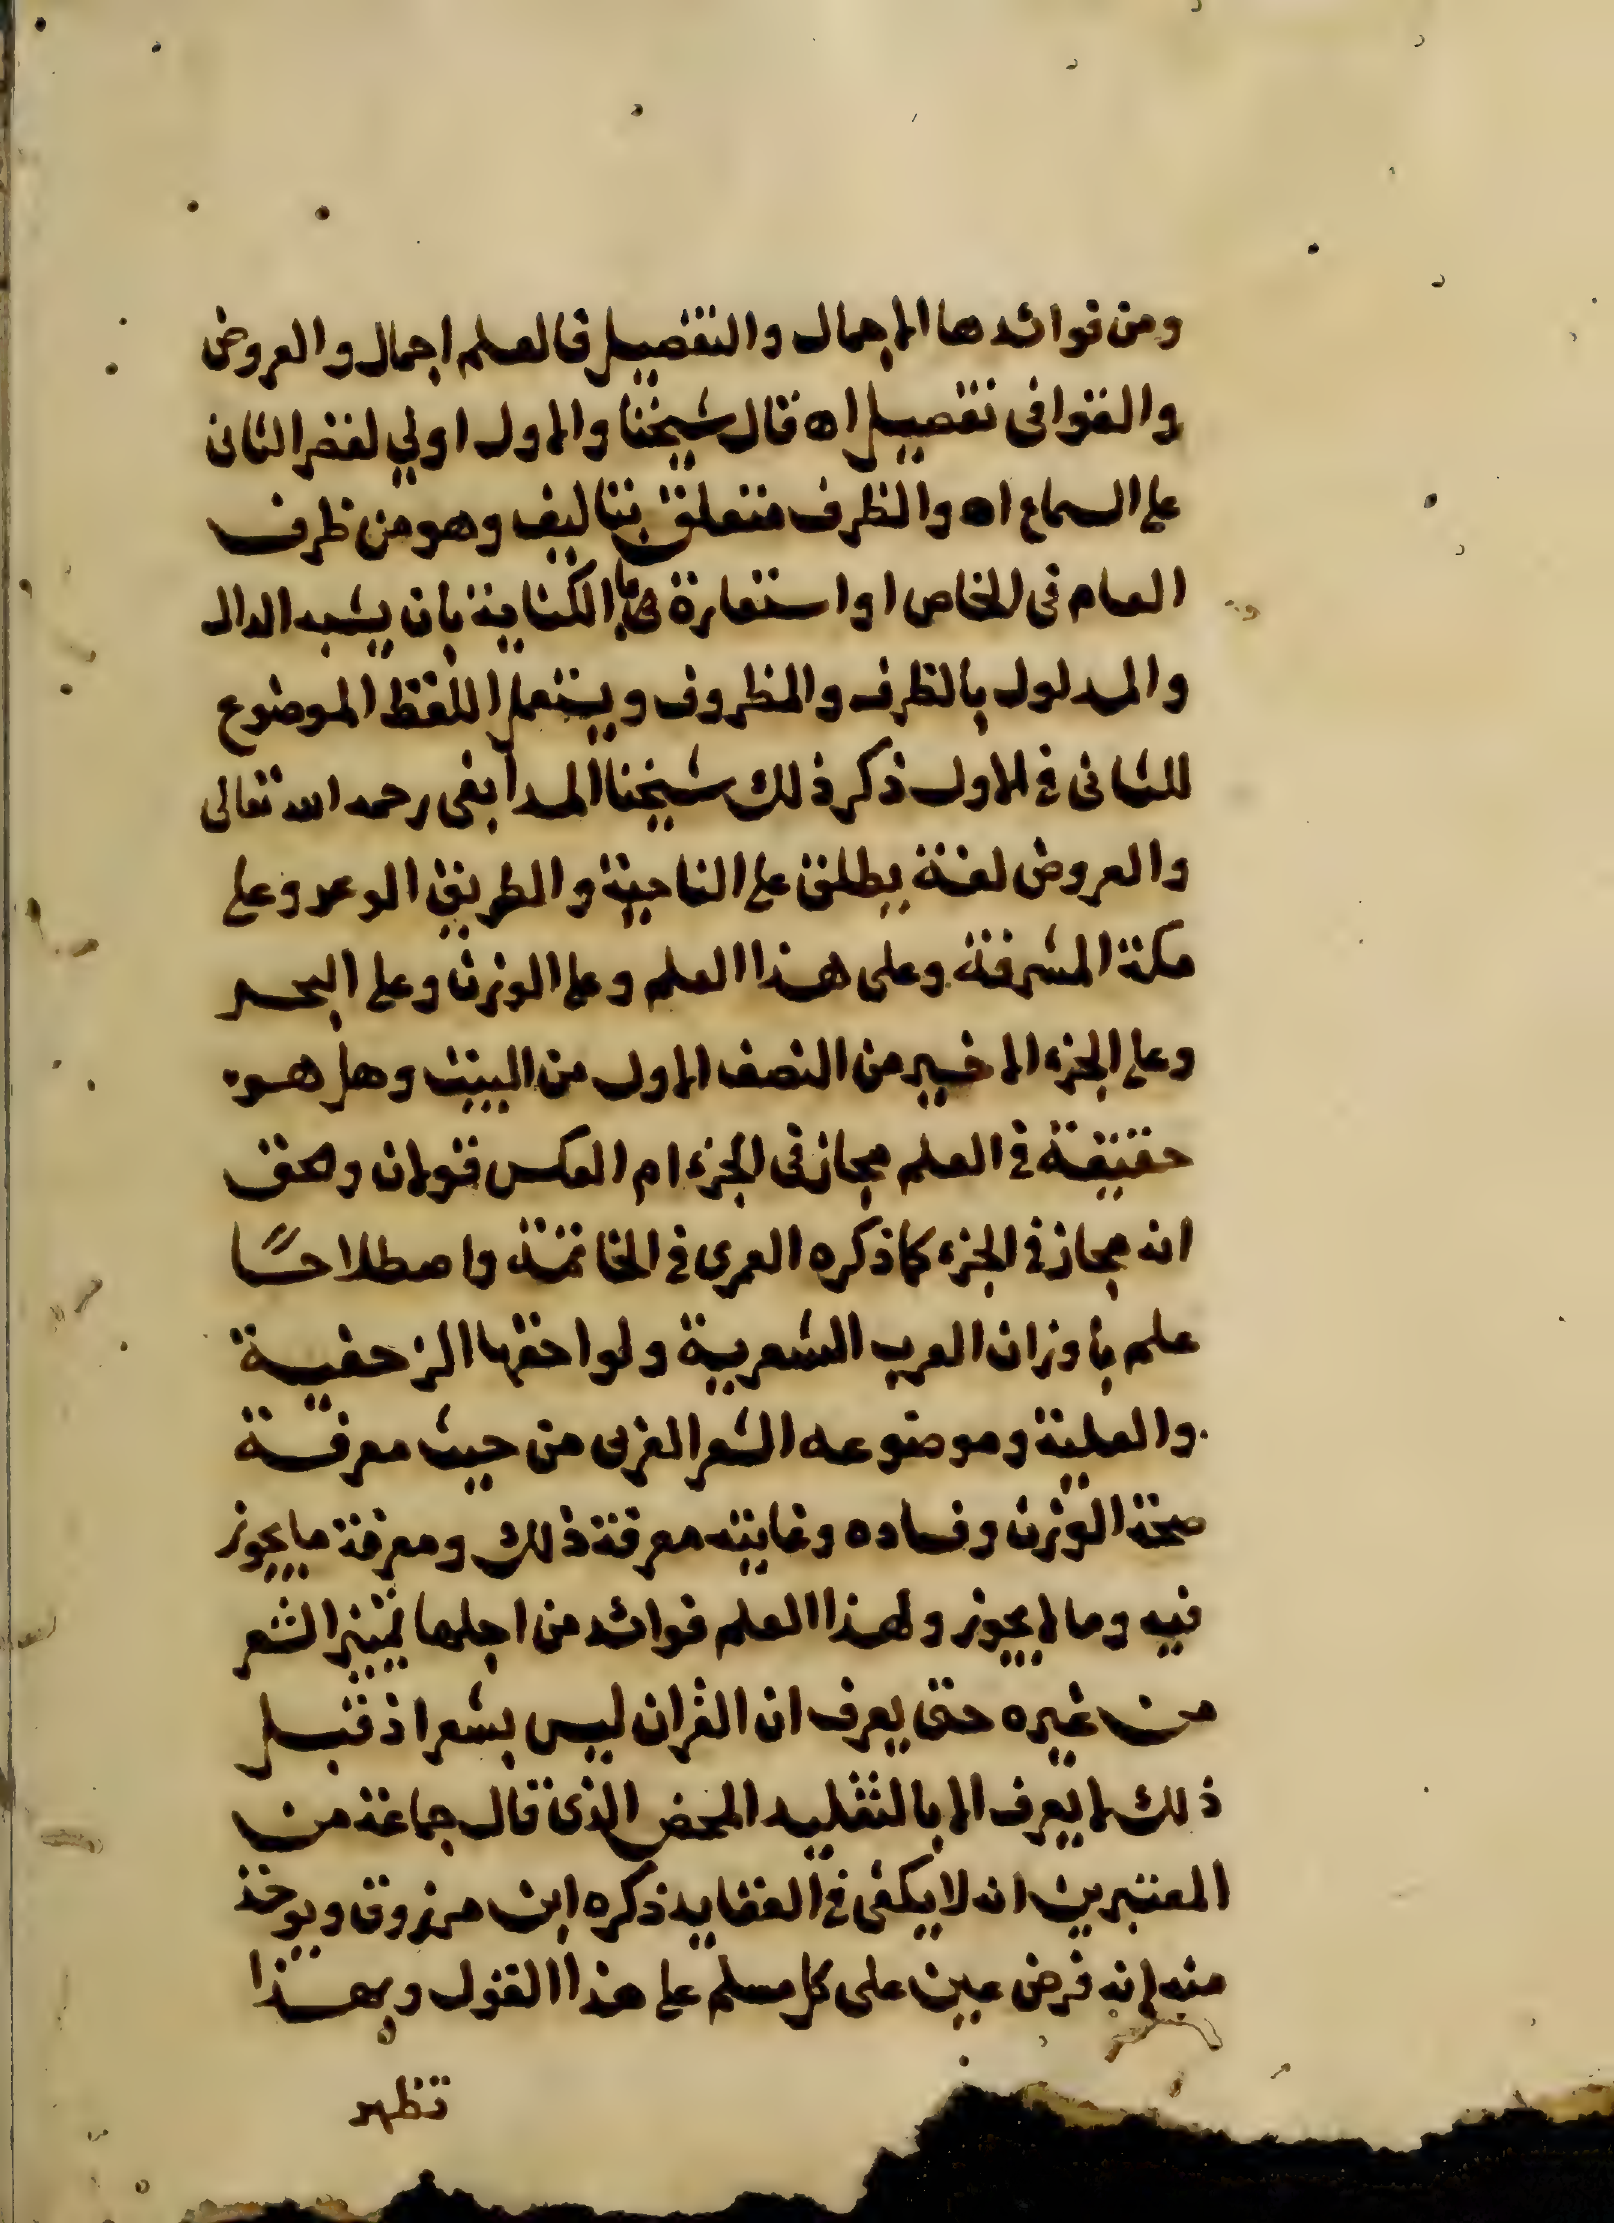 ومن فوائدها الاجمال والتفصيل فالعلم اجمال والعروض
والقوافى تفصيل اه قال شيخنا والاول اولي لقصر الثانى
على السماع اه والظرف متعلق بتاليف وهو من ظرف
العام فى الخاص او استعارة بالكناية بان يشبه الدال
والمدلول بالظرف والمظروف ويستعمل اللفظ الموضوع
للثانى فى الاول ذكر ذلك شيخنا المدابغى رحمه الله تعالى
والعروض لغة يطلق على الناحية والطريق الوعر وعلى
مكة المشرفة وعلى هذا العلم وعلى الوزن وعلى البحر
وعلى الجزء الاخير من النصف الاول من البيت وهل هو
حقيقة فى العلم مجاز فى الجزء ام العكس قولان والحق
انه مجاز فى الجزء كما ذكره العمرى فى الخاتمة واصطلاحًا
علم باوزان العرب الشعرية ولواحقها الزحفية
والعلية وموضوعه الشعر العربى من حيث معرفة
صحة الوزن وفساده وغايته معرفة ذلك ومعرفة ما يجوز
فيه وما لا يجوز ولهذا العلم فوائد من اجلها تمييز الشعر
من غيره حتى يعرف ان القران ليس بشعر اذ قبل
ذلك لا يعرف الا بالتقليد المحض الذى قال جماعة من
المعتبرين انه لا يكفى فى العقايد ذكره ابن مرزوق ويوخذ
منه انه فرض عين على كل مسلم على هذا القول وبهذا
تظهر